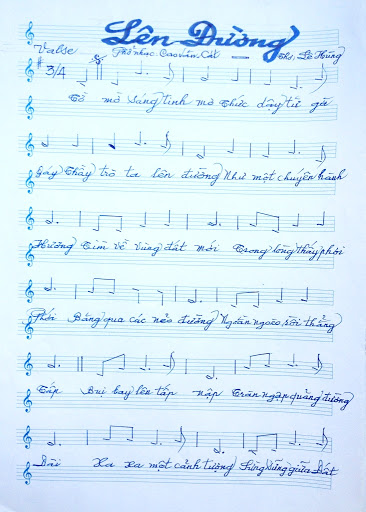 Lên Đường
Valse Phổ nhạc Cao Văn Cát Thơ: Lê Hùng
3/4
Tờ mờ sáng tinh mơ thức dậy từ gà
Gáy thầy trò ta lên đường Như một chuyến hành
Hương tìm về vùng đất mới Trong lòng thấy phơi
Phới Băng qua các nẻo đường Ngoằn ngoèo rồi thẳng
Tắp Bụi bay lên tấp nập Tràn ngập quãng đường
Dài Xa xa một cảnh tượng Sừng sững giữa đất